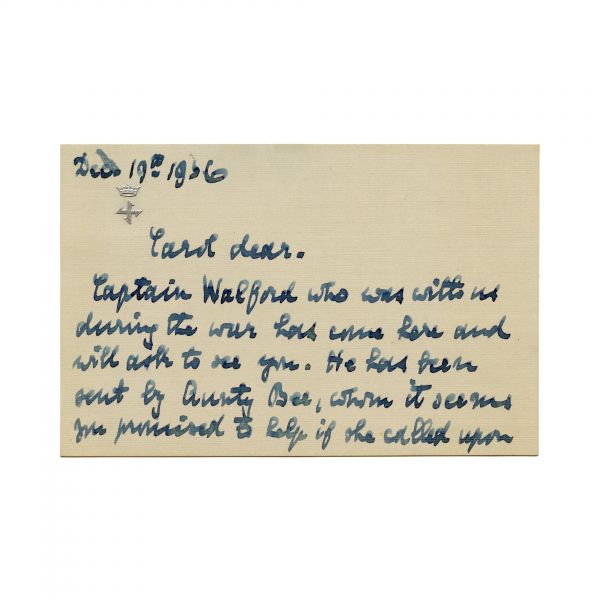 Dec. 19th 1936
Carol dear.
Captain Walford who was with us
during the war has come here and
will ask to see you. He has been
sent by Aunty Bee, whom it seems
you promised to help if she called upon